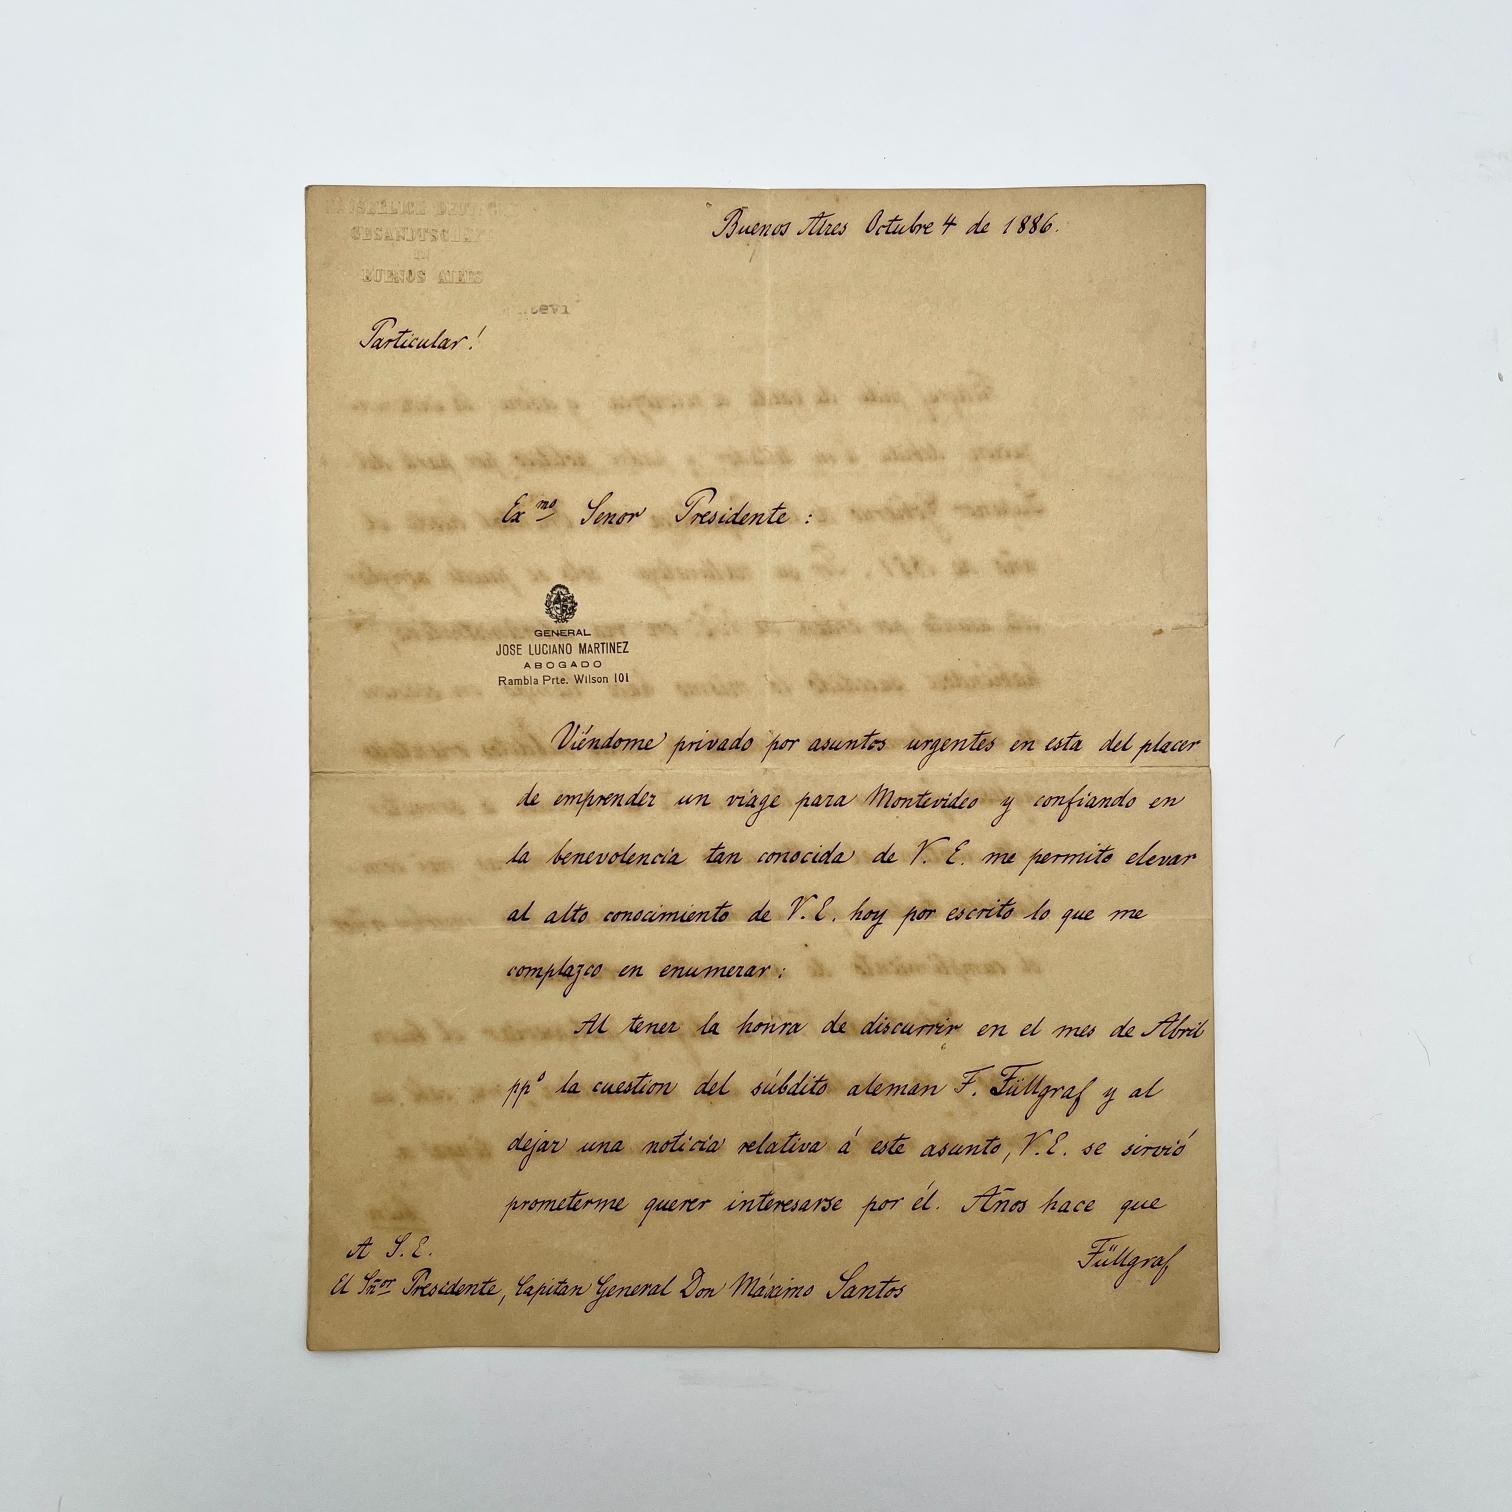 KAISERLICH DEUTSCHE
GESANDTSCHAFT
IN
BUENOS AIRES
Buenos Aires Octubre 4 de 1886.
Particular!
Ex.mo Senor Presidente:
GENERAL
JOSE LUCIANO MARTINEZ
ABOGADO
Rambla Prte. Wilson 101
Viéndome privado por asuntos urgentes en esta del placer
de emprender un viage para Montevideo y confiando en
la benevolencia tan conocida de V. E. me permito elevar
al alto conocimiento de V. E. hoy por escrito lo que me
complazco en enumerar:
Al tener la honra de discurrir en el mes de Abril
ppº la cuestion del súbdito aleman F. Füllgraf y al
dejar una noticia relativa á este asunto, V. E. se sirvió
prometerme querer interesarse por él. Años hace que
Füllgraf
A S. E.
El Sñor Presidente, Capitan General Don Máximo Santos